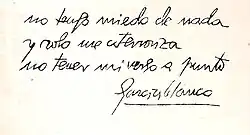 no tengo miedo de nada
y solo me aterroriza
no tener mi verso a punto